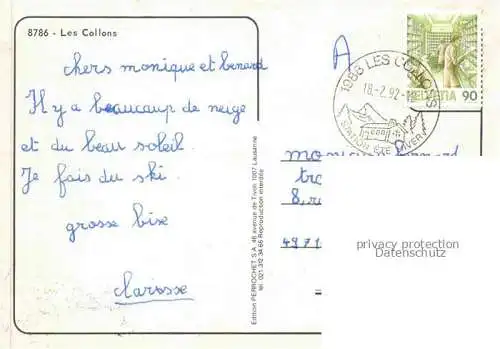 8786 - Les Collons
chers monique et benard
Il y a beaucoup de neige
et du beau soleil.
Je fais du ski.
grosse bise
Clarisse
Edition PERROCHET S.A. 46 avenue de Tivoli 1007 Lausanne
tél. 021.312 34 66 Reproduction interdite
A
1988 LES COLLONS
18-2.92-
STATION ÉTÉ HIVER
HELVETIA 90
8,
4971
privacy protection
Datenschutz